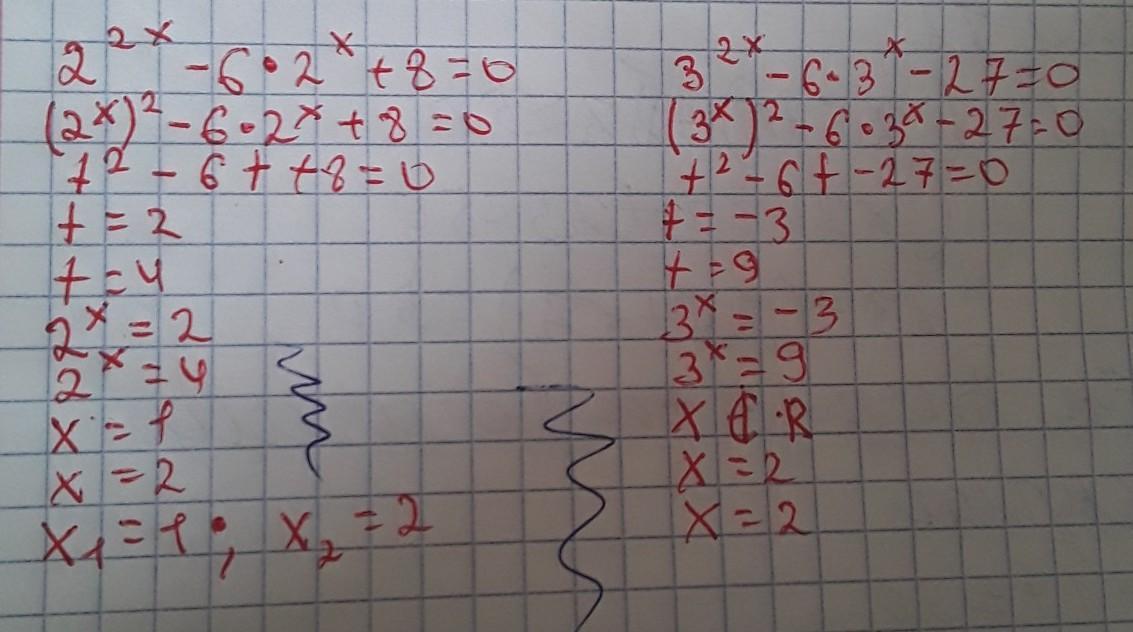 2^{2x} - 6 • 2^x + 8 = 0
(2^x)^2 - 6 • 2^x + 8 = 0
t^2 - 6t + 8 = 0
t = 2
t = 4
2^x = 2
2^x = 4
x = 1
x = 2
x_1 = 1; x_2 = 2
3^{2x} - 6 • 3^x - 27 = 0
(3^x)^2 - 6 • 3^x - 27 = 0
t^2 - 6t - 27 = 0
t = -3
t = 9
3^x = -3
3^x = 9
x ∉ R
x = 2
x = 2